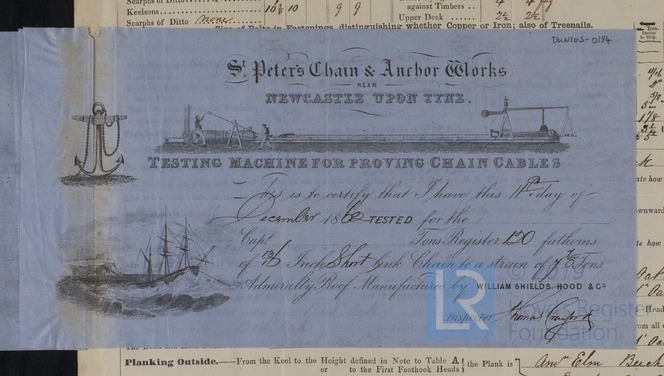 Scarphs of Ditto
Keelsons 10¾ 10 9 9
against Timbers
Scarphs of Ditto none
Upper Deck 2½ 2½
distinguishing whether Copper or Iron; also of Treenails.
DUNIDS-0194
St. Peter's Chain & Anchor Works
NEAR
NEWCASTLE UPON TYNE.
TESTING MACHINE FOR PROVING CHAIN CABLES
This is to certify that I have this 11th day of
December 1862 TESTED for the
Capt. Tons Register 120 fathoms
of Inch Short Link Chain to a strain of Tons
Admiralty Proof Manufactured by WILLIAM SHIELDS, HOOD & Co
Inspector Thomas
LR
Lloyd's Register
Foundation
Planking Outside.—From the Keel to the Height defined in Note to Table A
or to the First Foothook Heads
the Plank is Amn Elm Beech